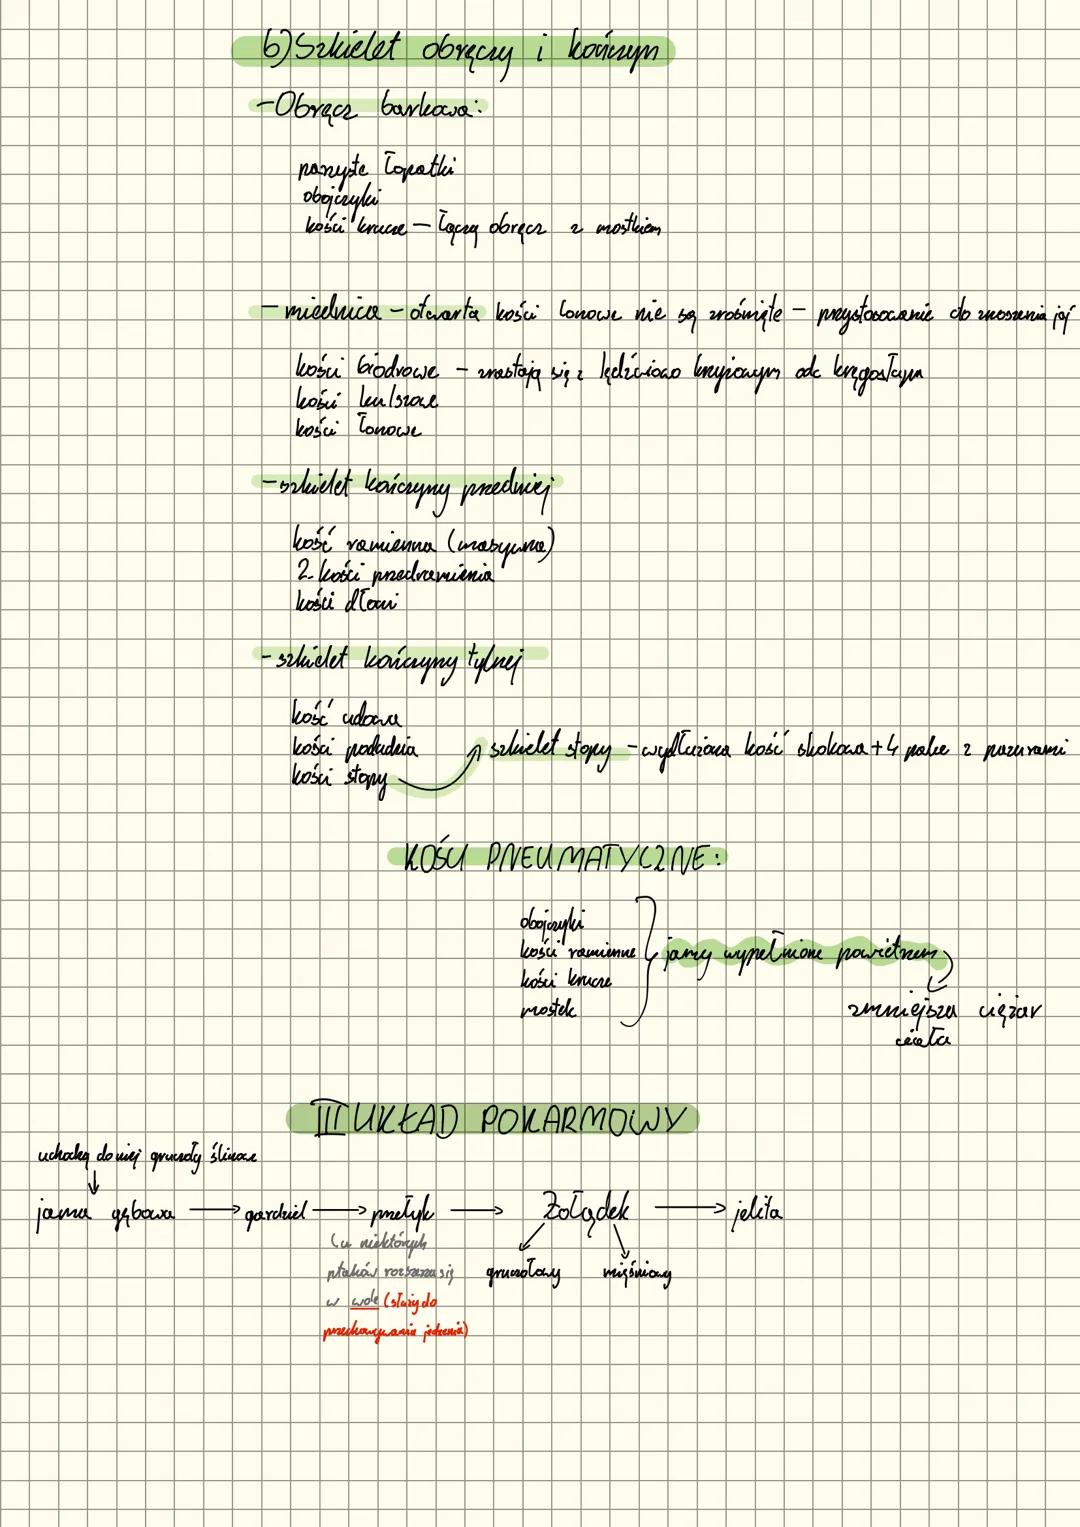 b) Szkielet obręczy i kończyn
-Obręcz barkowa:
parzyste łopatki
obojczyki
kości krucze – łączą obręcz z mostkiem
- miednica - otwarta kości łonowe nie są zrośnięte - przystosowanie do znoszenia jaj
kości biodrowe - zrastają się z lędźwiowo krzyżowym odc kręgosłupa
kości kulszowe
kości łonowe
-szkielet kończyny przedniej
kość ramienna (masywna)
2. kości przedramienia
kości dłoni
-szkielet kończyny tylnej
kość udowa
kości podudzia
kości stopy → szkielet stopy - wydłużona kość skokowa + 4 palce z pazurami
KOŚCI PNEUMATYCZNE:
obojczyki
kości ramienne
kości krucze
mostek
jamy wypełnione powietrzem
zmniejsza ciężar
ciała
III UKŁAD POKARMOWY
uchodzą do niej gruczoły ślinowe
jama gębowa → gardziel → przełyk → Żołądek → jelita
(u niektórych
ptaków rozszerza się
w wole (służy do
przechowywania jedzenia)
gruczołowy mięśniowy